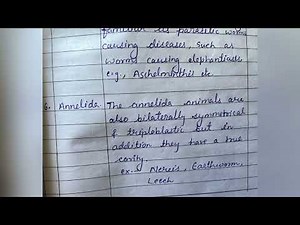 familiar as parasitic worms
causing diseases, such as
worms causing elephantiasis
e.g., Aschelminthis etc
6. Annelida The annelida animals are
also bilaterally symmetrical
& triploblastic but in
addition they have a true
cavity.
ex:- Nereis, Earthworm,
Leech